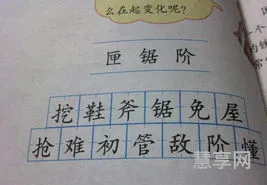 么在起变化呢?
匣锯阶
挖鞋斧锯免屋
抢难初管敌阶懂
慧享网